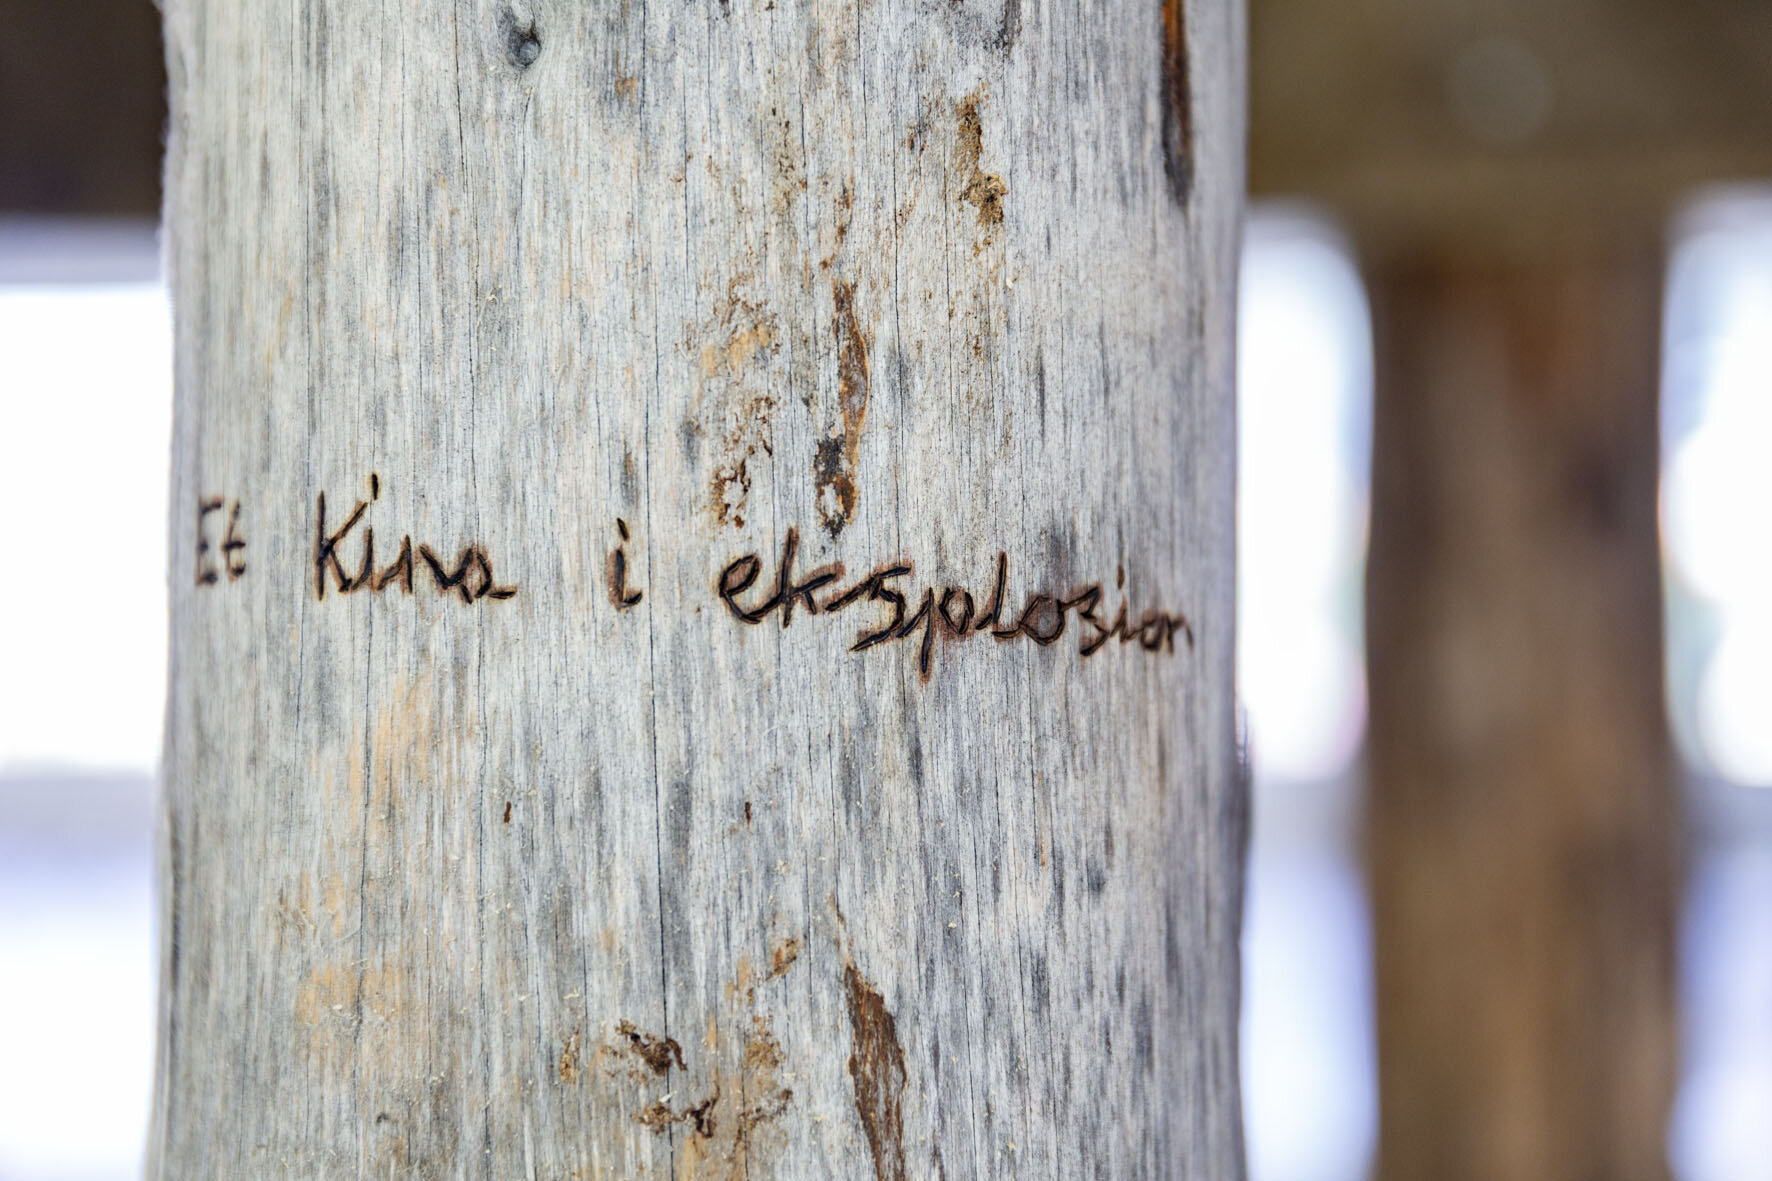 Et Kina i eksplosion